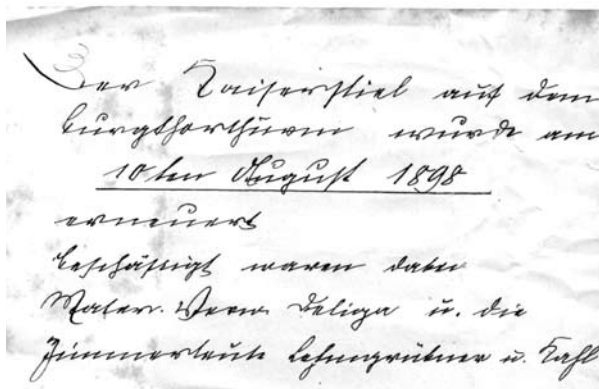 Der Kaiserstiel auf dem
Burgthorthurm wurde am
10ten August 1898
erneuert
beschäftigt waren dabei
Mater. Verw. Deliga u. die
Zimmerleute Lehmgrübner u. Kahl